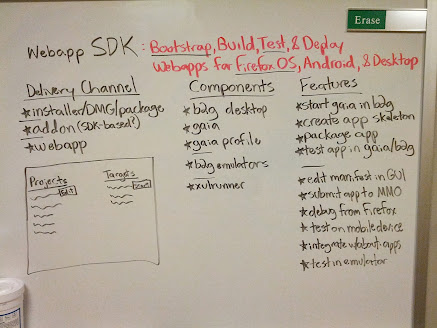 Erase
Webapp SDK: Bootstrap, Build, Test, & Deploy
Webapps for Firefox OS, Android, & Desktop
Delivery Channel
*installer/DMG/package
*addon (SDK-based?)
*webapp
Projects
Edit
Targets
Components
*b2g desktop
*gaia
*gaia profile
*b2g emulators
*xulrunner
Features
*start gaia in b2g
*create app skeleton
*package app
*test app in gaia/b2g
*edit manifest in GUI
*submit app to MMO
*debug from Firefox
*test on mobile device
*integrate w/about:apps
*test in emulator